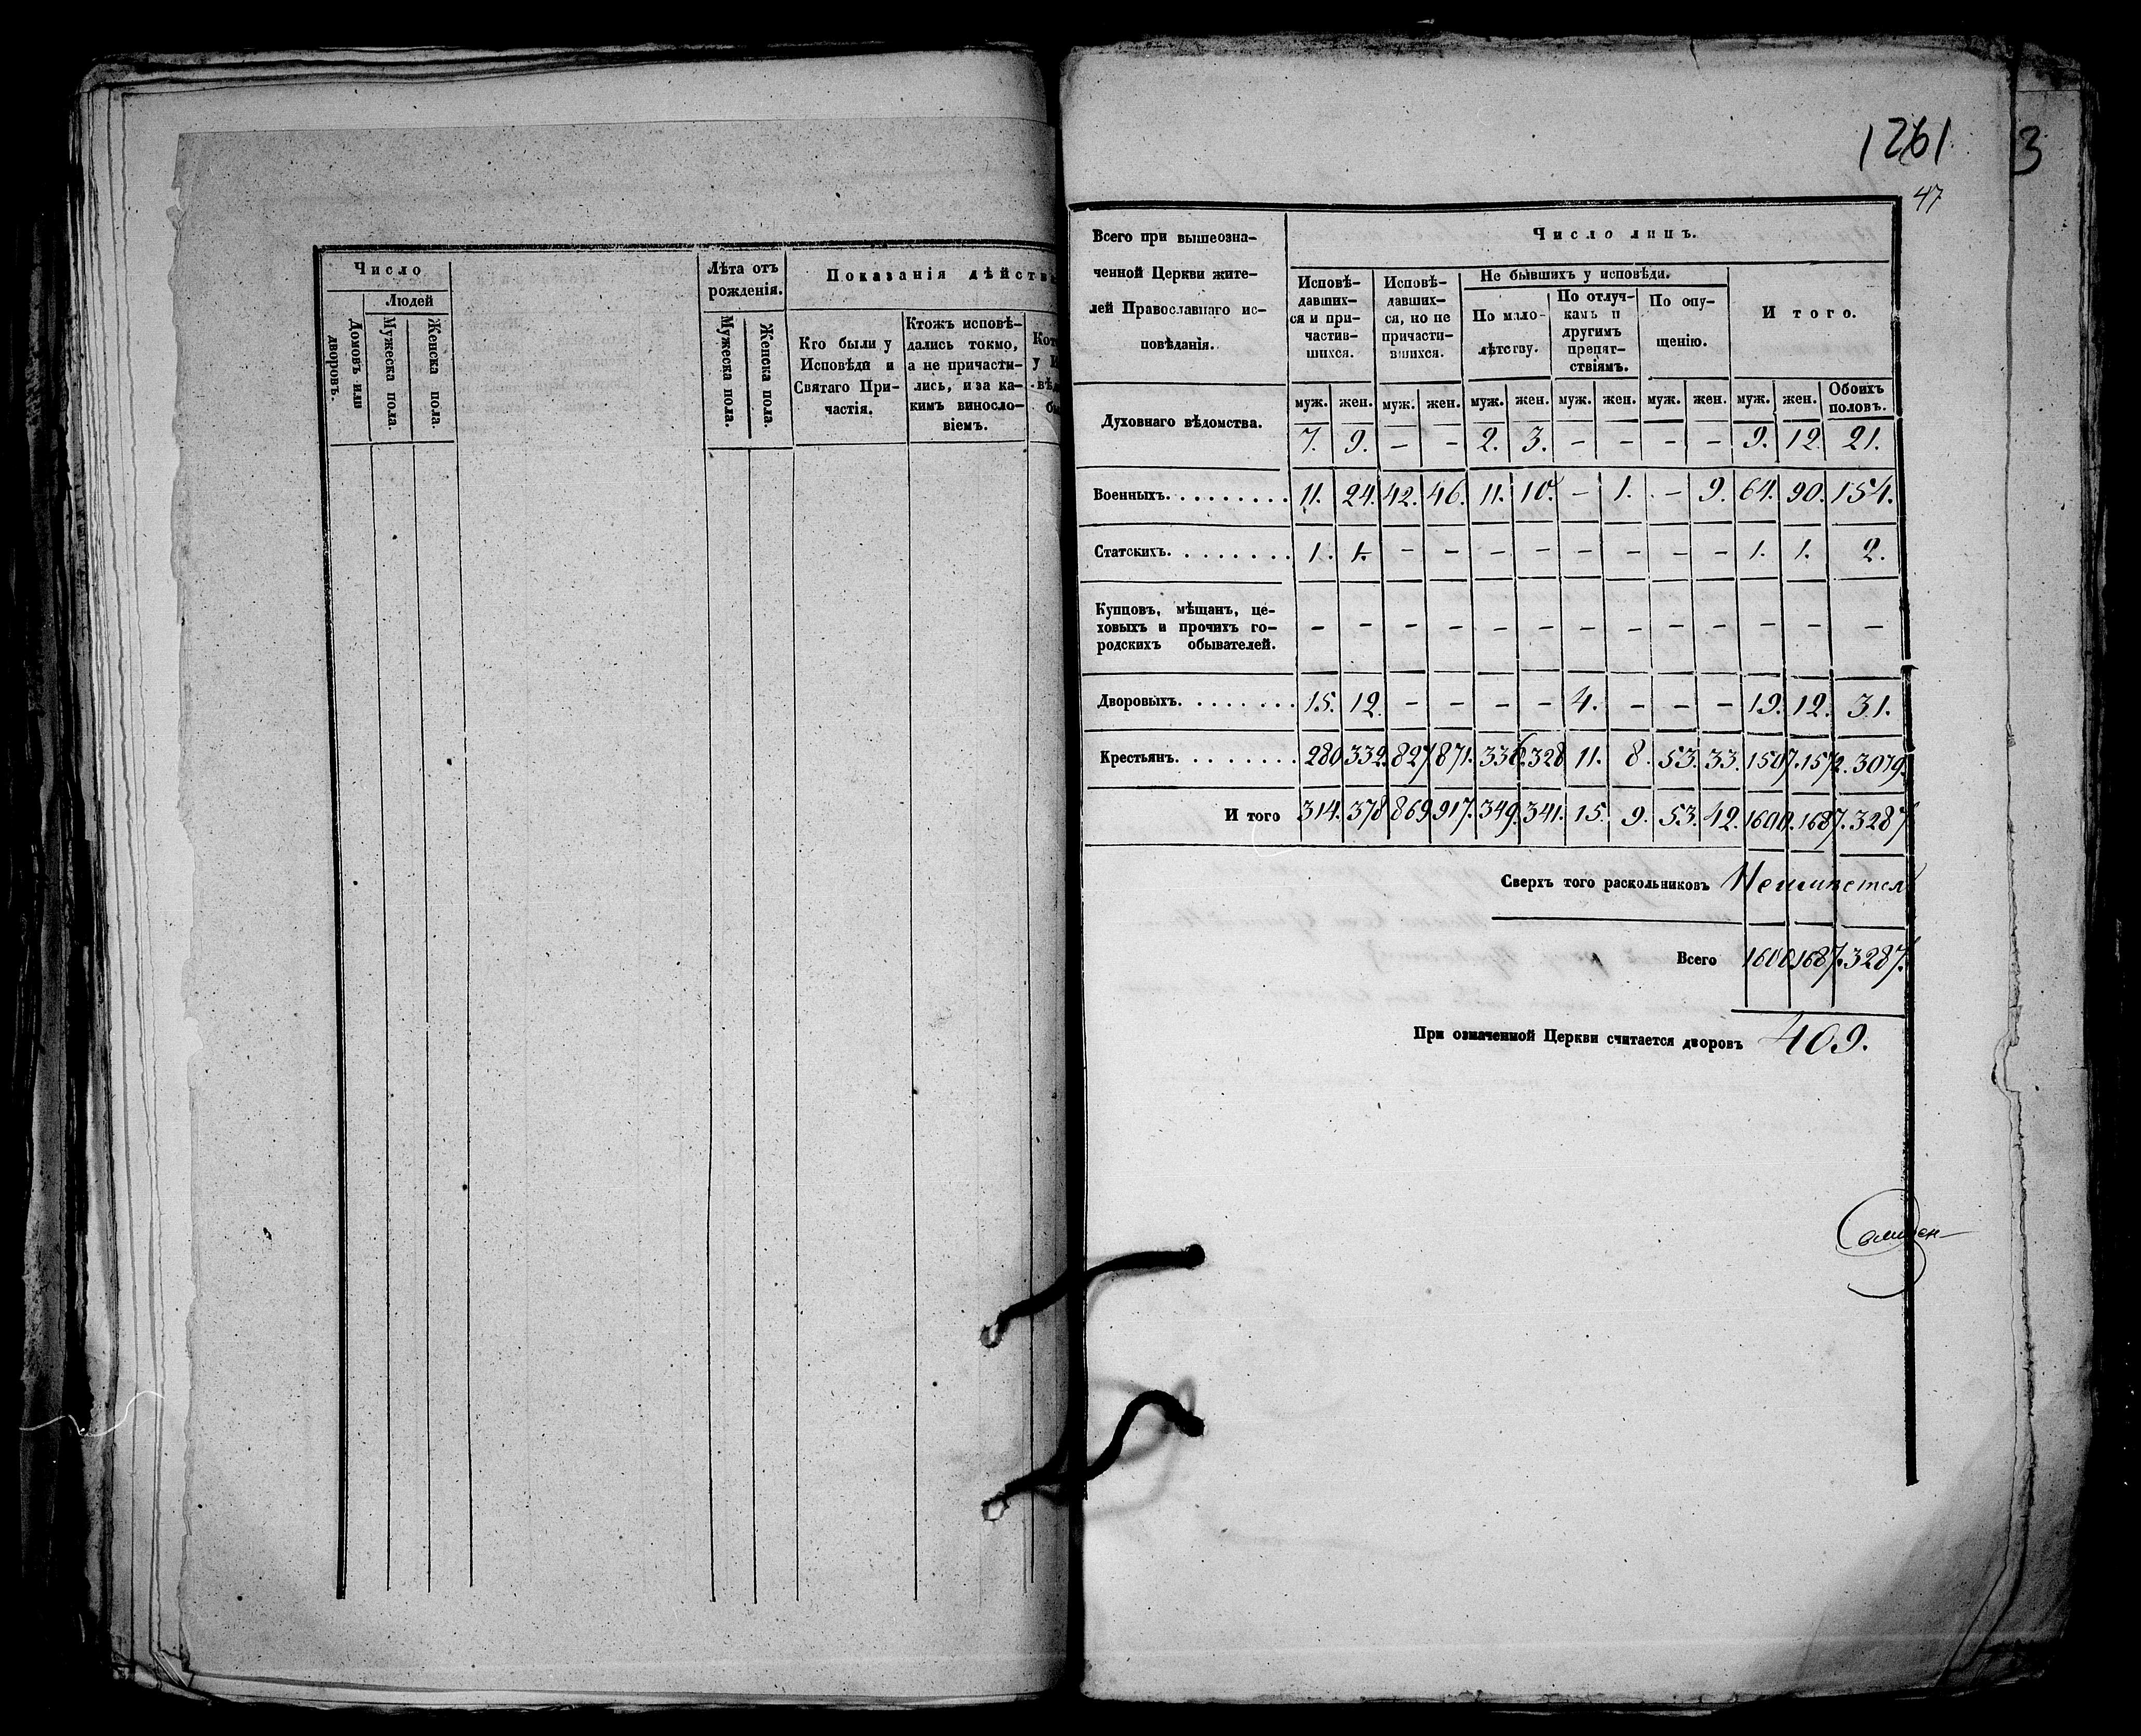 Число
Людей
Домовъ или дворовъ.
Мужеска пола.
Женска пола.
Лѣта отъ
рожденія.
Мужеска пола.
Женска пола.
Показанія дѣйств
Кто были у
Исповѣди и
Святаго При-
частія.
Ктожъ исповѣ-
дались токмо,
а не причасти-
лись, и за ка-
кимъ виносло-
віемъ.
1261
3
47
Всего при вышеозна-
ченной Церкви жите-
лей Православнаго ис-
повѣданія.
Число лицъ.
Исповѣ-
давших-
ся и при-
частив-
шихся.
Исповѣ-
давших-
ся, но не
причасти-
вшихся.
Не бывшихъ у исповѣди.
По мало-
лѣтству.
По отлуч-
камъ и
другимъ
препят-
ствіямъ.
По опу-
щенію.
И того.
муж. жен. муж. жен. муж. жен. муж. жен. муж. жен. муж. жен. Обоихъ половъ.
Духовнаго вѣдомства. 7. 9. – – 2. 3. – – – – 9. 12. 21.
Военныхъ. . . . . . . . . 11. 24. 42. 46. 11. 10. – 1. – 9. 64. 90. 154.
Статскихъ. . . . . . . . 1. 1. – – – – – – – – 1. 1. 2.
Купцовъ, мѣщанъ, це-
ховыхъ и прочихъ го-
родскихъ обывателей. – – – – – – – – – – – – –
Дворовыхъ. . . . . . . . 15. 12. – – – – 4. – – – 19. 12. 31.
Крестьянъ. . . . . . . . 280. 332. 827. 871. 336. 328. 11. 8. 53. 33. 1507. 1572. 3079.
И того 314. 378. 869. 917. 349. 341. 15. 9. 53. 42. 1600. 1687. 3287.
Сверхъ того раскольниковъ Неимѣется
Всего 1600. 1687. 3287.
При означенной Церкви считается дворовъ 409.